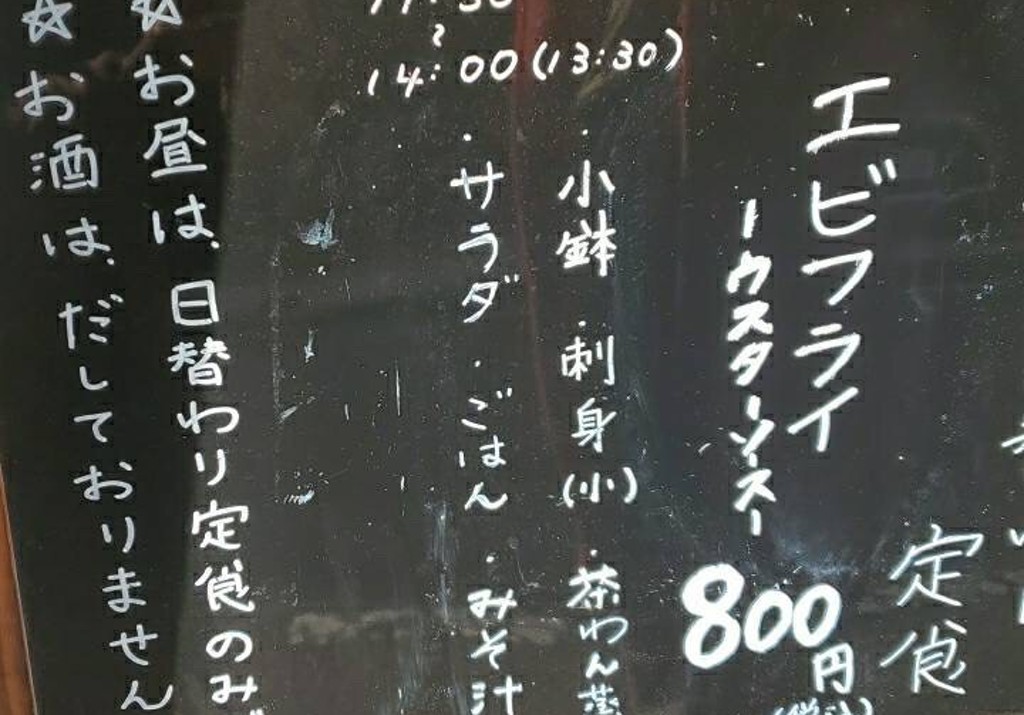 定食
エビフライ
ーウスターソースー
800円
14:00(13:30)
・小鉢・刺身(小)・茶わん蒸
・サラダ・ごはん・みそ汁
☆お昼は、日替わり定食のみ
☆お酒は、だしておりません